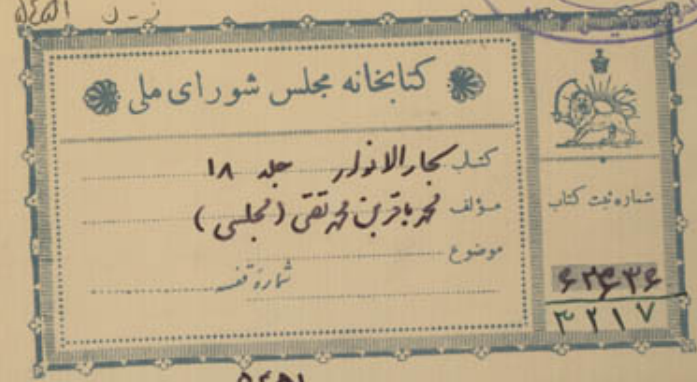 کتابخانه مجلس شورای ملی
کتاب بحارالانوار جلد ۱۸
مؤلف محمد باقر بن محمد تقی (مجلسی)
موضوع
شماره قفسه
شماره ثبت کتاب
۶۲۶۳۶
۳۲۱۷